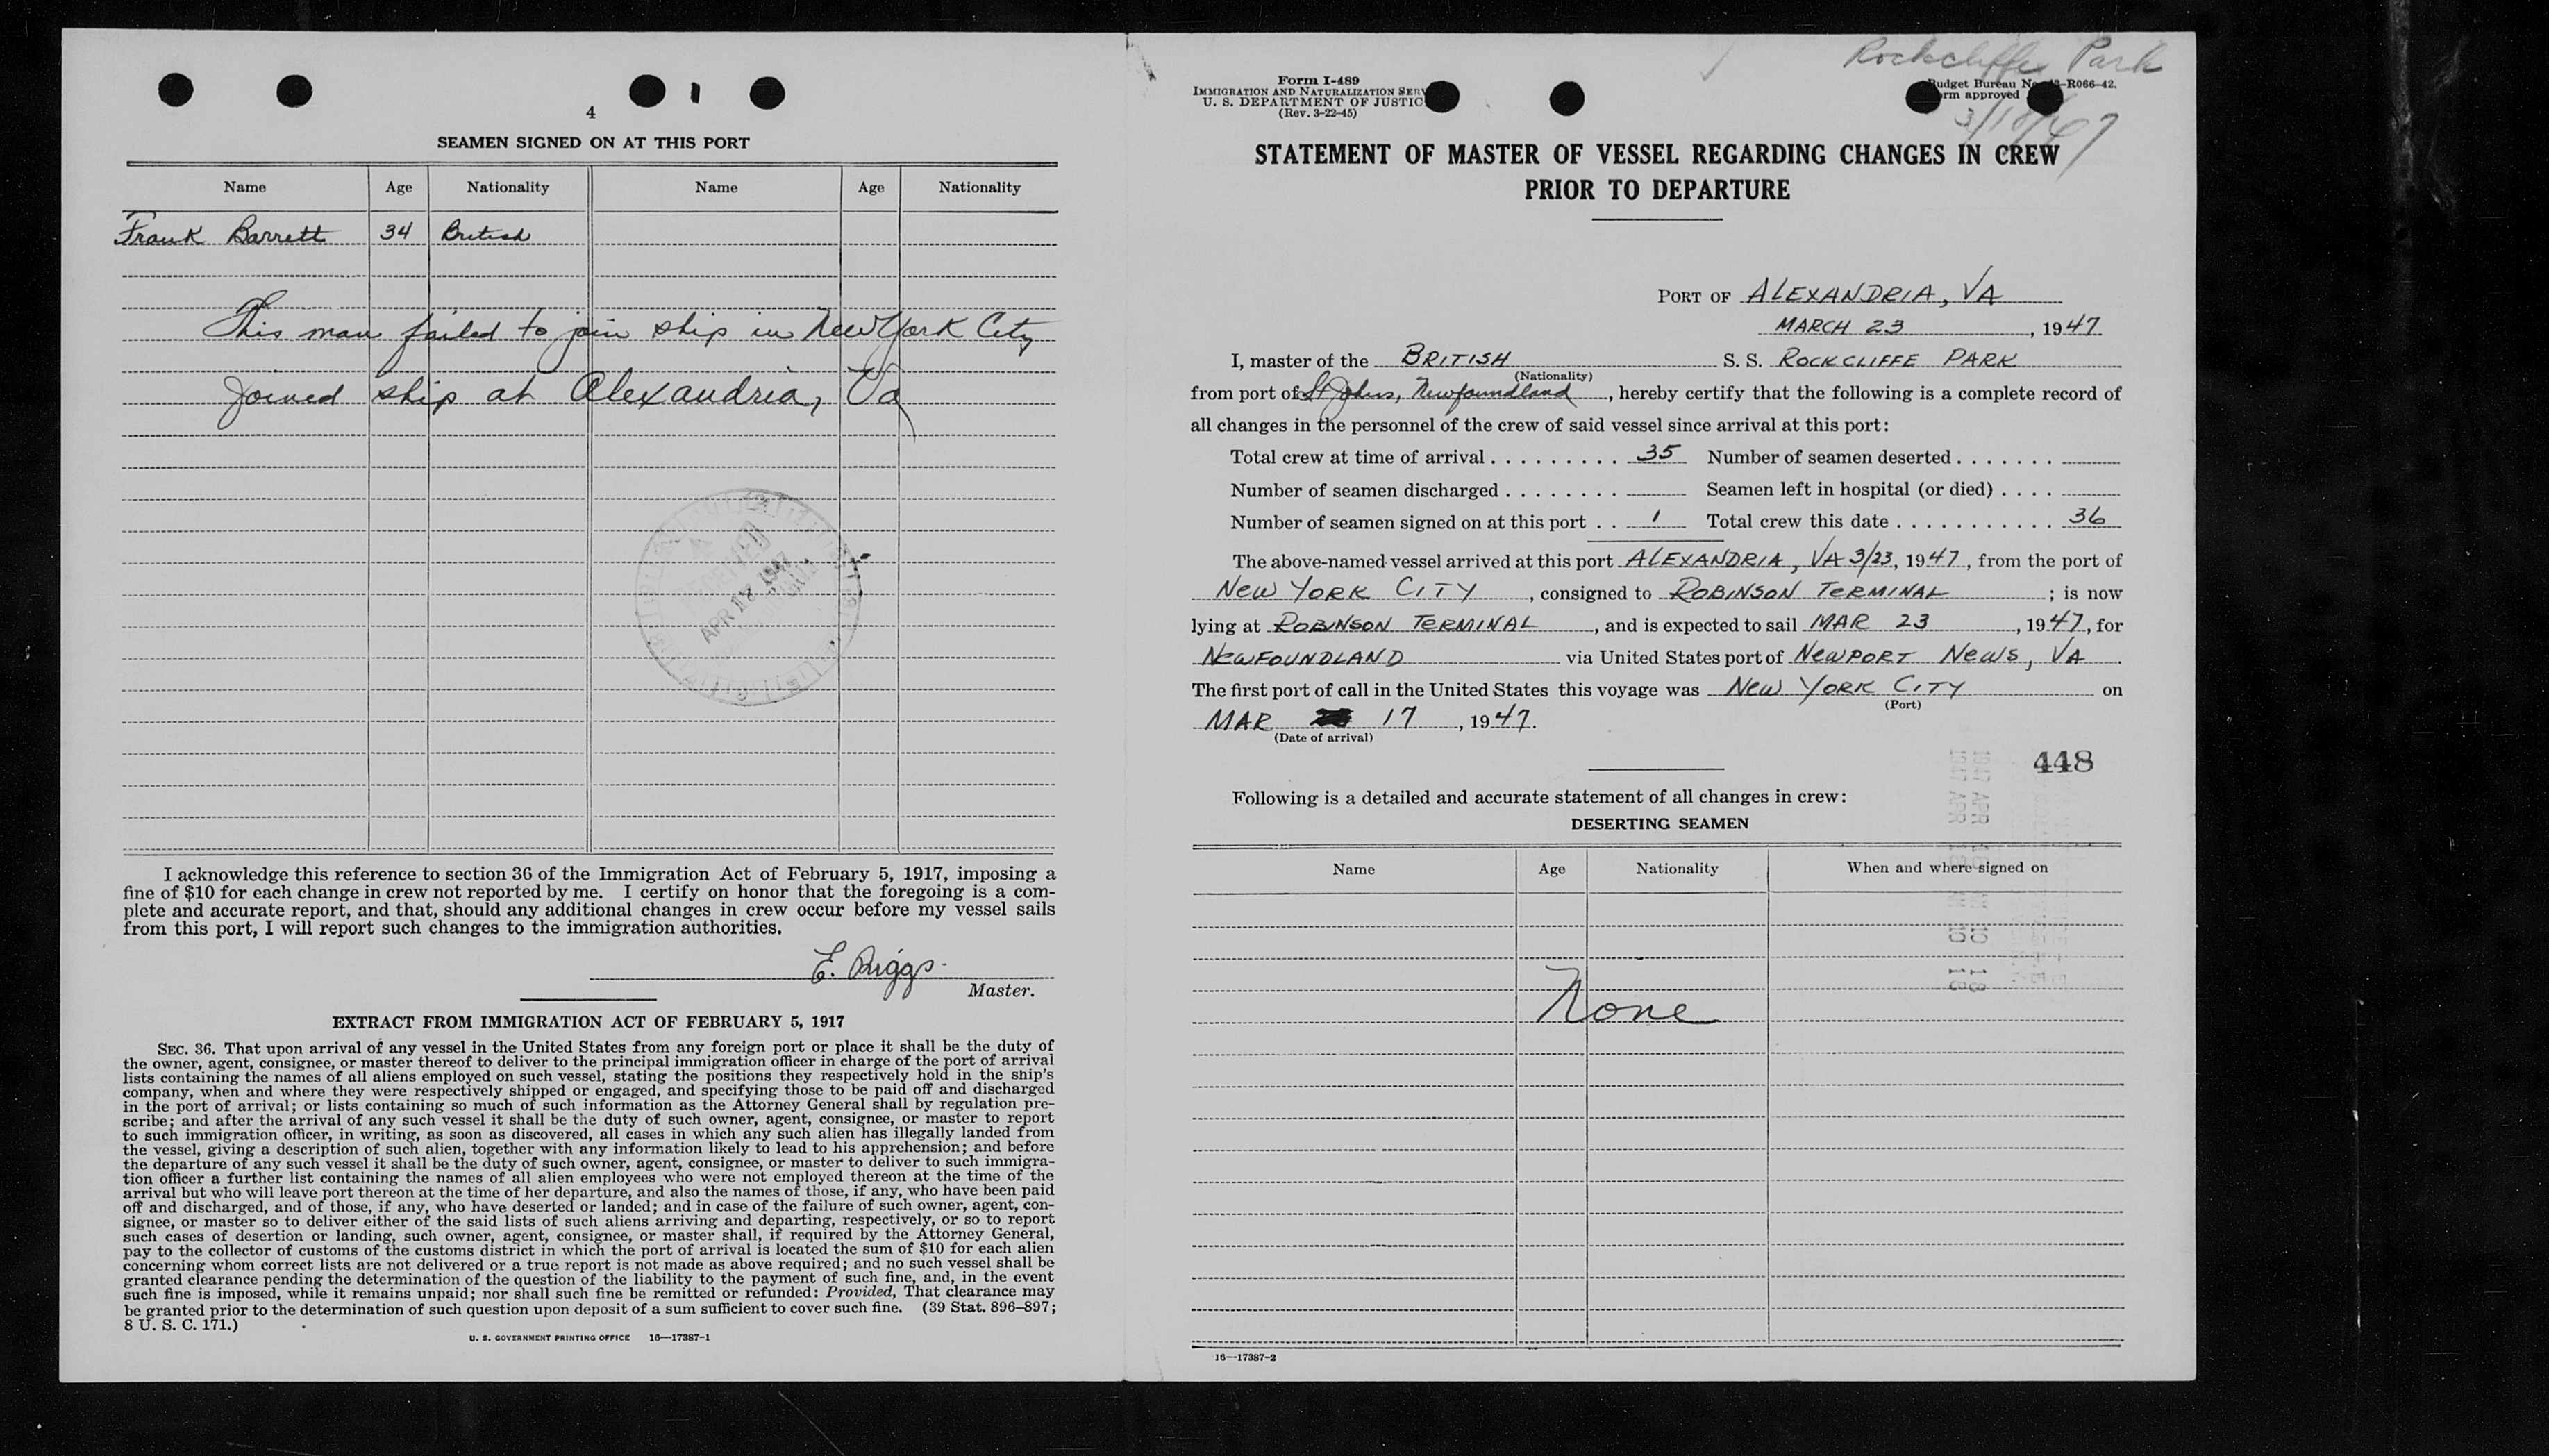 4
SEAMEN SIGNED ON AT THIS PORT
Name Age Nationality Name Age Nationality
Frank Barrett 34 British
This man failed to join ship in New York City
Joined ship at Alexandria, Va
RECEIVED
APR 17 1947
I acknowledge this reference to section 36 of the Immigration Act of February 5, 1917, imposing a
fine of $10 for each change in crew not reported by me. I certify on honor that the foregoing is a com-
plete and accurate report, and that, should any additional changes in crew occur before my vessel sails
from this port, I will report such changes to the immigration authorities.
E. Briggs
Master.
EXTRACT FROM IMMIGRATION ACT OF FEBRUARY 5, 1917
SEC. 36. That upon arrival of any vessel in the United States from any foreign port or place it shall be the duty of
the owner, agent, consignee, or master thereof to deliver to the principal immigration officer in charge of the port of arrival
lists containing the names of all aliens employed on such vessel, stating the positions they respectively hold in the ship's
company, when and where they were respectively shipped or engaged, and specifying those to be paid off and discharged
in the port of arrival; or lists containing so much of such information as the Attorney General shall by regulation pre-
scribe; and after the arrival of any such vessel it shall be the duty of such owner, agent, consignee, or master to report
to such immigration officer, in writing, as soon as discovered, all cases in which any such alien has illegally landed from
the vessel, giving a description of such alien, together with any information likely to lead to his apprehension; and before
the departure of any such vessel it shall be the duty of such owner, agent, consignee, or master to deliver to such immigra-
tion officer a further list containing the names of all alien employees who were not employed thereon at the time of the
arrival but who will leave port thereon at the time of her departure, and also the names of those, if any, who have been paid
off and discharged, and of those, if any, who have deserted or landed; and in case of the failure of such owner, agent, con-
signee, or master so to deliver either of the said lists of such aliens arriving and departing, respectively, or so to report
such cases of desertion or landing, such owner, agent, consignee, or master shall, if required by the Attorney General,
pay to the collector of customs of the customs district in which the port of arrival is located the sum of $10 for each alien
concerning whom correct lists are not delivered or a true report is not made as above required; and no such vessel shall be
granted clearance pending the determination of the question of the liability to the payment of such fine, and, in the event
such fine is imposed, while it remains unpaid; nor shall such fine be remitted or refunded: Provided, That clearance may
be granted prior to the determination of such question upon deposit of a sum sufficient to cover such fine. (39 Stat. 896–897;
8 U. S. C. 171.)
U. S. GOVERNMENT PRINTING OFFICE 16—17387-1
Rockcliffe Park
3/18/47
Form I-489
IMMIGRATION AND NATURALIZATION SERV
U. S. DEPARTMENT OF JUSTIC
(Rev. 3-22-45)
Budget Bureau No. -R066-42.
rm approved
STATEMENT OF MASTER OF VESSEL REGARDING CHANGES IN CREW
PRIOR TO DEPARTURE
PORT OF ALEXANDRIA, VA
MARCH 23, 1947
I, master of the BRITISH S. S. ROCKCLIFFE PARK
(Nationality)
from port of St Johns, Newfoundland, hereby certify that the following is a complete record of
all changes in the personnel of the crew of said vessel since arrival at this port:
Total crew at time of arrival . . . . . . . . . 35 Number of seamen deserted . . . . . . .
Number of seamen discharged . . . . . . . . Seamen left in hospital (or died) . . . .
Number of seamen signed on at this port . . 1 Total crew this date . . . . . . . . . . . . 36
The above-named vessel arrived at this port ALEXANDRIA, VA 3/23, 1947, from the port of
NEW YORK CITY, consigned to ROBINSON TERMINAL; is now
lying at ROBINSON TERMINAL, and is expected to sail MAR 23, 1947, for
NEWFOUNDLAND via United States port of NEWPORT NEWS, VA.
The first port of call in the United States this voyage was NEW YORK CITY on
(Port)
MAR 17, 1947.
(Date of arrival)
448
Following is a detailed and accurate statement of all changes in crew:
DESERTING SEAMEN
Name Age Nationality When and where signed on
None
16—17387-2